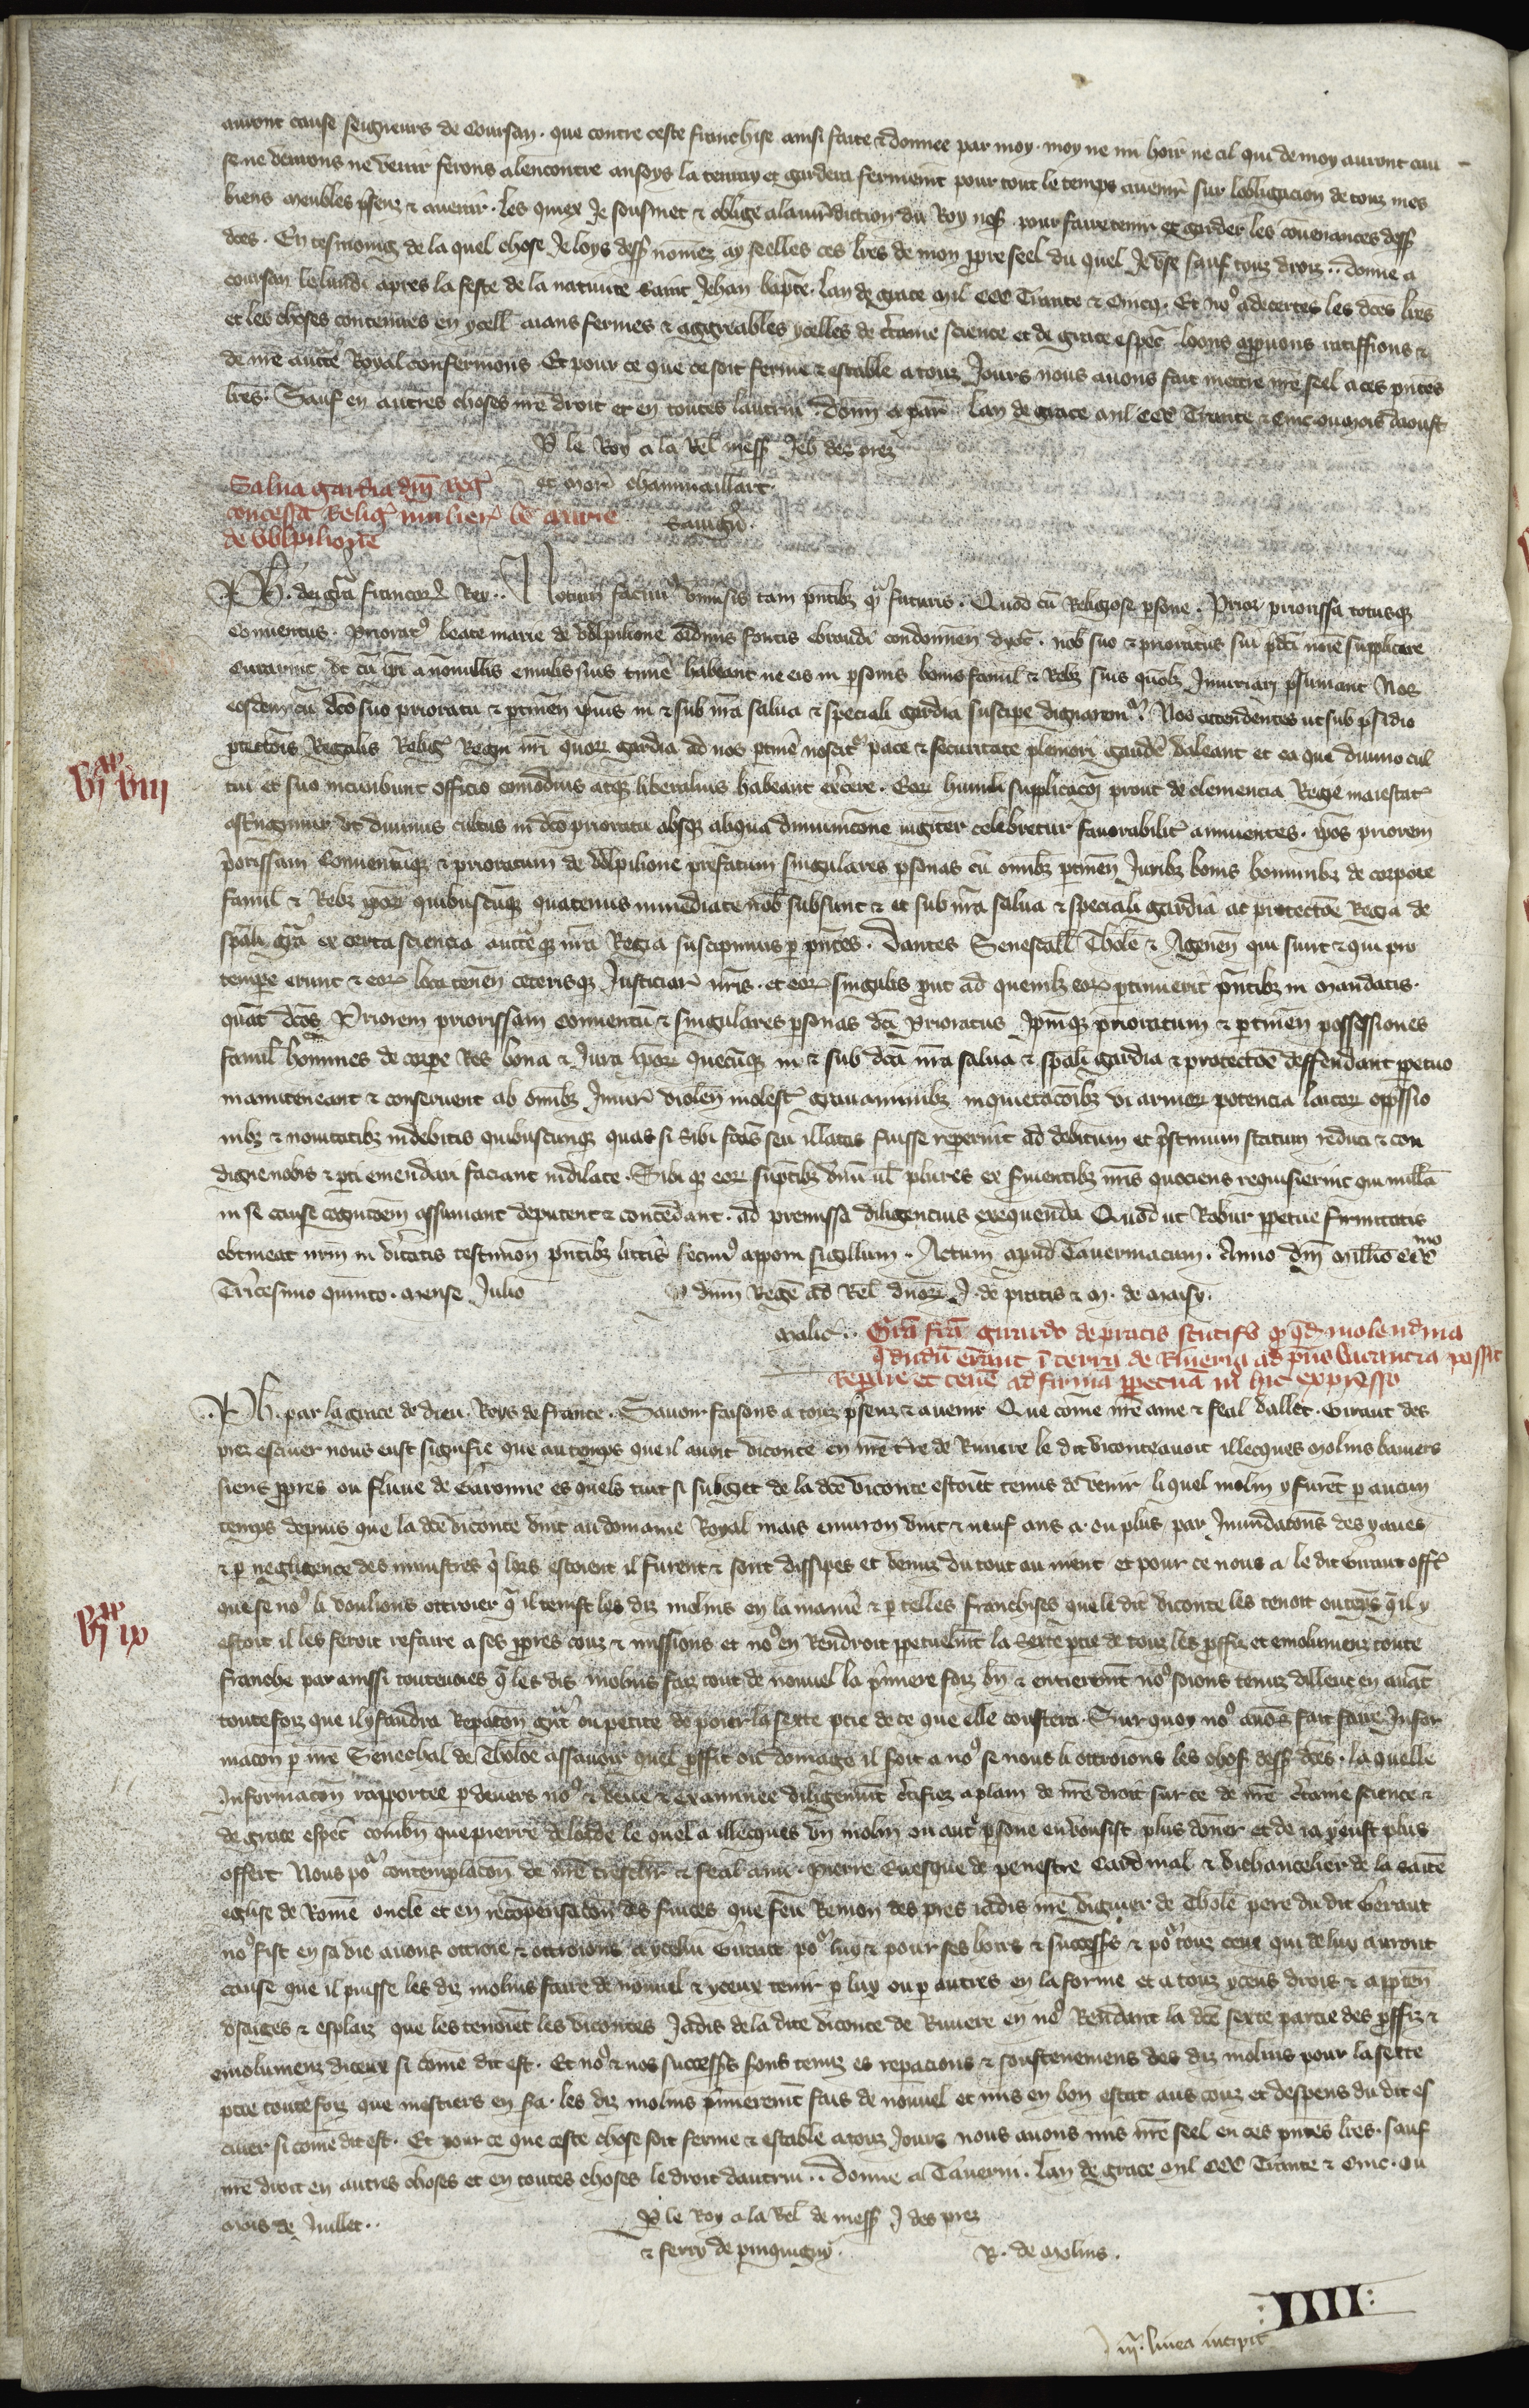 auront cause seigneurs de Coursan. que contre ceste franchise ainsi faite & donnee par moy. moy ne mi hoir ne cil qui de moy auront cau
se ne vemons ne venir ferons alencontre ansoys la tenray et garderai fermemt pour tout le temps avenir sur lobligacion de touz mes
biens meubles psenz & avenir. les quiex Je sousmet & oblige a la iuridiction du Roy nosr. pour faire tenir & garder les convenances dess
dces. En tesmoing de la quel chose Je loys dess nomez ay seelles ces lres de mon ppre seel du quel Je use sauf touz droiz.. donne a
coursan le lundi apres la feste de la nativite saint Jehan bapte. lan de grace mil CCC Trante & Cincq. Et no9 adecertes les dces lres
et les choses contenues en ycell aians fermes & aggreables ycelles de ctaine science et de grace espec loons appuons ratiffions &
de nre aucte Royal confermons. Et pour ce que ce soit ferme & estable a touz Jours nous avons fait mettre nre seel a ces pntes
lres. Sauf en autres choses nre droit et en toutes lautrui. donn a par lan de grace mil CCC Trante & Cinc ou mois daoust
P le Roy a la Rel mess Jeh des prez
et mor chamuaillart.
Savign.
Salva gardia dni Reg
concessa Relig mulier be marie
de Volpilione
Ph. dei gra francor Rex.. Notum facim9 univsis tam pntibz q futuris. Quod cu Religiose psone. Prior priorissa totusq
Conventus. Priorat9 beate marie de Volpilione ordinis fontis Ebraudi condomien dyoc. nob suo & prioratus sui pdci noie supplicare
curarint. ut cu ipi a nonnullis emulis suis timere habeant ne eis in psonis bonis famil & Rebz suis quobz Iniuriari psumant Nos
eosdem cu dco suo prioratu & ptinen ipius in & sub nra salva & speciali gardia suscipe dignaremr. Nos attendentes ut sub psidio
ptectois Regalis Relig Regni nri quor gardia ad nos ptine noscitr pace & securitate pleniori gaude valeant et ea que divino cul
tui et suo incumbunt officio comodius atq liberalius habeant exercere. Eor humili supplicacoi prout de clemencia Regie maiestat
astringimur ut divinus cultus in dco prioratu absq aliqua diminucione iugiter celebretur favorabilit annuentes. ipos priorem
priorissam Conventuq & prioratum de Volpilione prefatum singulares psonas cu omibz ptinen Juribz bonis hominibz de corpore
famil & Rebz ipor quibuscuq quatenus immediate nob subsunt & et sub nra salva & speciali gardia ac protectoe Regia de
spali gra ex certa sciencia aucteq nra Regia suscipimus p pntes. Dantes Senescall Thole & Agenen qui sunt & qui pro
tempe erunt & eor loca tenen ceterisq Justiciar nris. et eor singulis put ad quemlz eor ptinuerit pntibz in mandatis.
quat dcos Priorem priorissam conventu & singulares psonas dci Prioratus Ipmq prioratum & ptinen possessiones
famil homines de corpe Res bona & Jura ipor quecuq in & sub dca nra salva & spali gardia & protectoe deffendant ppetuo
manuteneant & conservent ab omibz Iniur violen molest gravaminibz inquietacoibz vi armor potencia laicor oppssio
nibz & novitatibz indebitis quibuscunq quas si sibi fcas seu illatas fuisse repperint ad debitum et pstinum statum reduci & con
digne nobis & pti emendari faciant indilate. Sibi q eor suptibz unu ul plures ex svientibz nris quociens requisierint qui nulla
in se cause cognitoem assumant deputent & concedant. ad premissa diligencius exequenda Quod ut Robur ppetue firmitatis
obtineat nrm in veritatis testimon pntibz litteris fecim9 apponi sigillum.. Actum apud Tavermacum. Anno dni millio CCCmo
Tricesimo quinto. mense Julio
P dnm Rege ad Rel dnor J. de pratis & m. de maisy.
malic..
Gra fca Guirardo de pratis scutifo q qd molendina
q dudu erant i terra de Riveria ad pns vacancia possit
Repare et tene ad firma ppetua m hic expresso
Ph. par la grace de dieu. Roys de france.. Savoir faisons a touz psenz & avenir Que come nre ame & feal vallet. Giraut des
prez escuier nous eust signifie que au temps que il avoit viconte en nre tre de Riviere le dit viconte avoit illecques molins baniers
siens ppres ou fluve de Garonne es quels tuit si subget de la dce viconte estoiet tenus de venir li quel molin y furet p aucun
temps depuis que la dce viconte vint au domaine Royal mais environ vint & neuf ans a. ou plus par Inundatons des yaues
& p negligence des ministres q lors estoient il furent & sont dissipes et venuz du tout au nient et pour ce nous a le dit Giraut offt
que se no9 li voulions ottroier q il tenist les diz molins en la manie & p telles franchises que le dit viconte les tenoit ou teps q il y
estoit il les feroit refaire a ses ppres couz & missions et no9 en Rendroit ppetuelmt la sexte ptie de touz les pffiz et emolumenz toute
franche par ainssi toutevoies q les dis molins faiz tout de nouvel la pmiere foiz bn & entieremt no9 soions tenuz dillenc en avat
toutefoiz que il y faudra Repacon grt ou petite de poier la sexte ptie de ce que elle coustera. Sur quoy no9 avons fait faire Infor
macon p nre Seneschal de Tholoe assavoir quel pffit ou domage il soit a no9 se nous li ottroions les chos dess dces. la quelle
Informaton rapportee p devers no9 & veue & examinee diligemmt ctifiez a plain de nre droit sur ce de nre ctaine science &
de grace espec combn que pierre delorde le quel a illecques un molin ou autr psone en vousist plus doner et de ia p eust plus
offert Nous por contemplacon de nre treschr & feal ami. Pierre Evesque de penestre Cardinal & vichancelier de la saite
eglise de Rome oncle et en recompensacon des svices que feu Remon des pres iadis nre viguier de Thole pere du dit Geraut
no9 fist en sa vie avons ottroie & ottroions a ycelui Giraut por luy & pour ses hoirs & success & por touz ceux qui de luy auront
cause que il puisse les diz molins faire de nouvel & yceux tenir p luy ou p autres en la forme et a touz yceus drois & apptên
usaiges & esplaiz que les tenoiet les vicontes Jadis de la dite viconte de Riviere en no9 Rendant la dce sexte partie des pffiz &
emolumenz diceux si come dit est. Et no9 & nos success sons tenuz es repacions & soustenemens des diz molins pour la sexte
ptie toutefoiz que mestiers en sa. les diz molins pmieremt fais de nouvel et mis en bon estat aus couz et despens du dit es
cuier si come dit est. Et pour ce que ceste chose soit ferme & estable a touz Jours nous avons mis nre seel en ces pntes lres. sauf
nre droit en autres choses et en toutes choses le droit dautrui.. Donne a Taverni. lan de grace mil CCC Trante & Cinc. ou
mois de Juillet..
P le Roy a la Rel de mess J des prez
& ferry de pinquigny.
R. de molins.
vi xx viii
vi xx ix
:IIII:
iiia. linea incipit